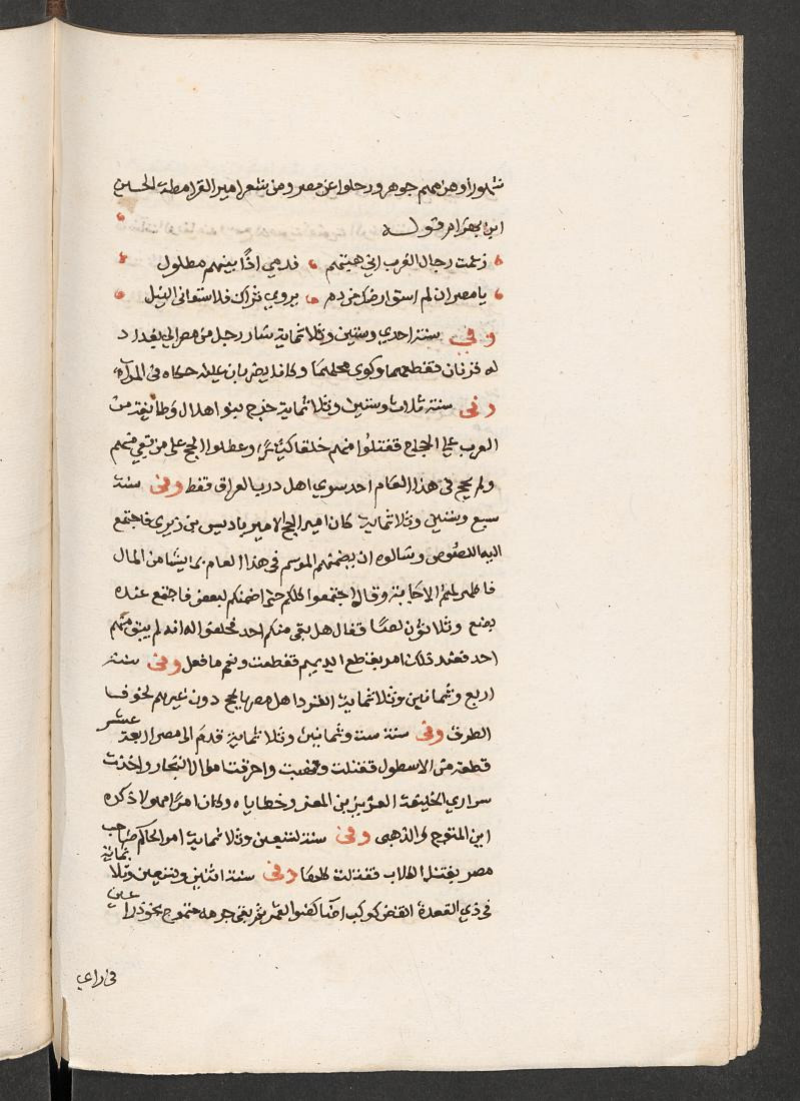 شهورا وهزمهم جوهر ورحلوا عن مصر ومن شعر امير القرامطة الحسين
ابن بهرام قوله
زعمت رجال الغرب اني هبتهم فدمي اذا بينهم مطلول
يا مصر ان لم اسق ارضك من دم يروي ثراك فلا سقاني النيل
وفي سنة احدي وستين وثلاثماية سار رجل من مصر الي بغداد
له قرنان فقطعهما وكوى محلهما وكانا يضربان عليه حكاه في المرآة
وفى سنة ثلاث وستين وثلاثماية خرج بنو اهلال وطايفة من
العرب علي الحجاج فقتلوا منهم خلقا كثيرا وعطلوا الحج على من بقي منهم
ولم يحج فى هذا العام احد سوي اهل درب العراق فقط وفى سنة
سبع وستين وثلاثماية كان امير الحج الامير باديس بن زيرى فاجتمع
اليه اللصوص وسالوه ان يضمنهم الموسم فى هذا العام بما يشا من المال
فاظهر لهم الاجابة وقال اجتمعوا كلكم حتى اضمنكم لبعض فاجتمع عنده
بضع وثلاثون لصا فقال هل بقى منكم احد فحلفوا له انه لم يبق منهم
احد فعند ذلك امر بقطع ايديهم فقطعت ونعم ما فعل وفى سنة
اربع وثمانين وثلاثماية انفرد اهل مصر بالحج دون غيرهم لخوف
الطرق وفى سنة ست وثمانين وثلاثماية قدم الى مصر اربعة عشر
قطعة من الاسطول فقتلت ونهبت واحرقت اموال التجار واخذت
سراري الخليفة العزيز بن المعز وخطاياه وكان امرا مهولا ذكره
ابن المتوج والذهبى وفى سنة تسعين وثلاثماية امر الحاكم صاحب
مصر بقتل الكلاب فقتلت كلها وفى سنة اثنين وتسعين وثلاثماية
فى ذي القعدة انقض كوكب اضا كضوا القمر بقى جرمه يتموج نحو ذراعين
فى راي